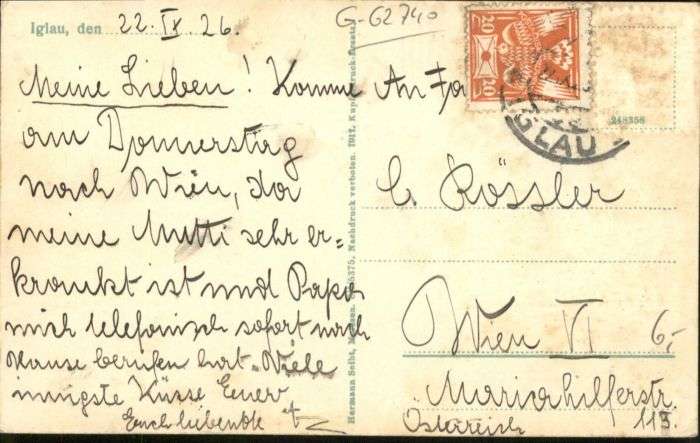 Iglau, den 22. IX. 26.
G-G2740
Meine Lieben! Komme
am Donnerstag
nach Wien, da
meine Mutti sehr er=
krankt ist und Papa
mich telefonisch sofort nach
Hause berufen hat. Viele
innigste Küsse Euer
Euch liebendste
Hermann Seibt, Meissen. 375. Nachdruck verboten. 1917. Kupferdruck-Ersatz.
20
20
IGLAU
248358
An Fa
C. Rössler
Wien VI
6,-
Mariahilferstr.
113.
Österreich